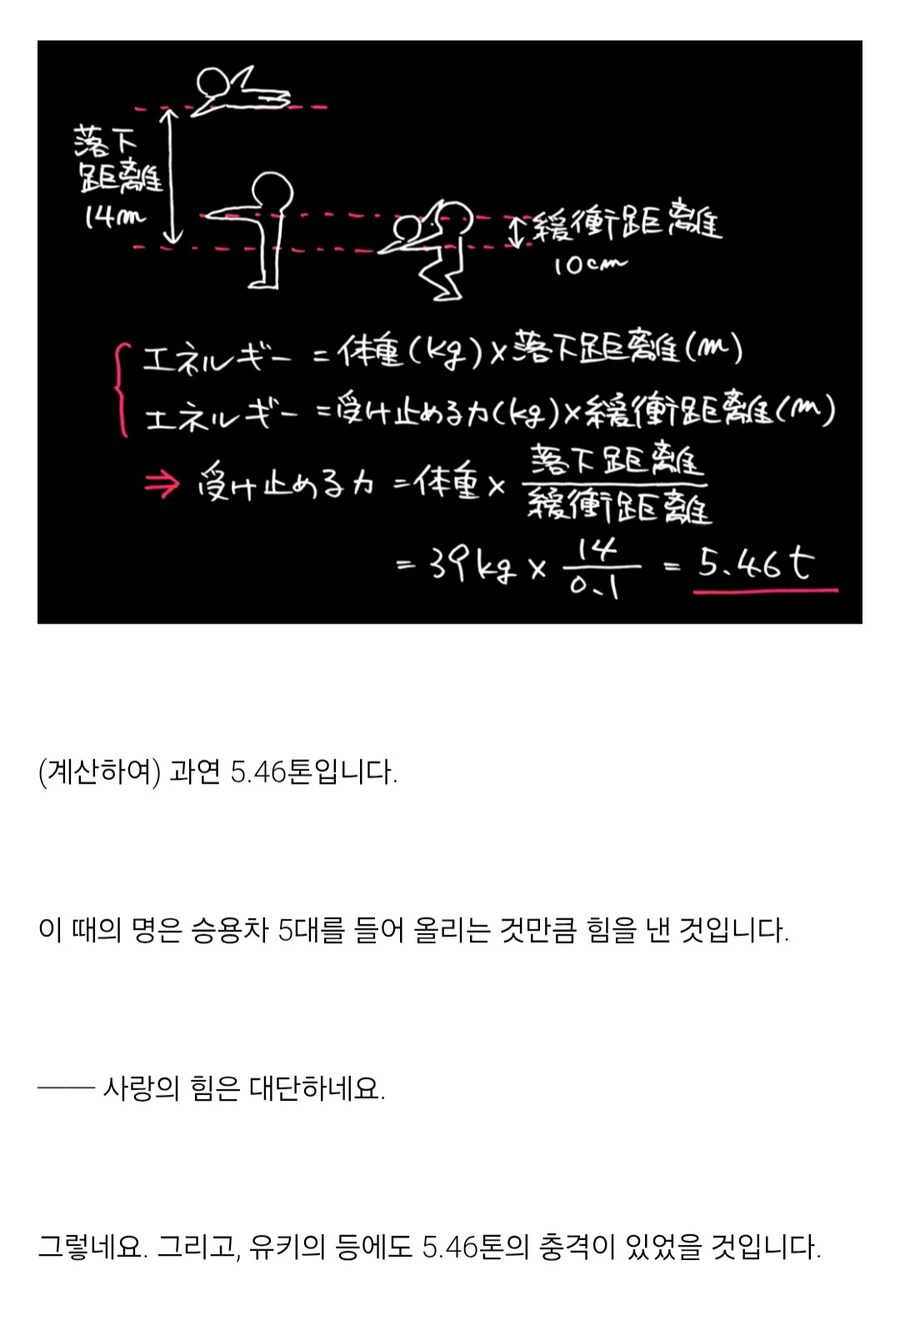 落下
距離
14m
緩衝距離
10cm
エネルギー = 体重(kg)×落下距離(m)
エネルギー = 受け止める力(kg)×緩衝距離(m)
⇒ 受け止める力 = 体重 × 落下距離
緩衝距離
= 39kg × 14 = 5.46t
0.1
(계산하여) 과연 5.46톤입니다.
이 때의 명은 승용차 5대를 들어 올리는 것만큼 힘을 낸 것입니다.
─── 사랑의 힘은 대단하네요.
그렇네요. 그리고, 유키의 등에도 5.46톤의 충격이 있었을 것입니다.